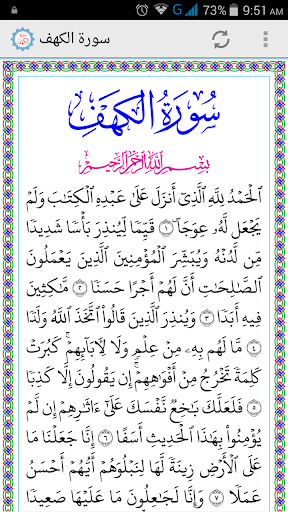 73% 9:51 AM
سورة الكهف
سُورَةُ الكَهْفِ
بِسْمِ اللَّهِ الرَّحْمَٰنِ الرَّحِيمِ
الْحَمْدُ لِلَّهِ الَّذِي أَنزَلَ عَلَىٰ عَبْدِهِ الْكِتَابَ وَلَمْ
يَجْعَل لَّهُ عِوَجًا ۜ ﴿١﴾ قَيِّمًا لِّيُنذِرَ بَأْسًا شَدِيدًا
مِّن لَّدُنْهُ وَيُبَشِّرَ الْمُؤْمِنِينَ الَّذِينَ يَعْمَلُونَ
الصَّالِحَاتِ أَنَّ لَهُمْ أَجْرًا حَسَنًا ﴿٢﴾ مَّاكِثِينَ
فِيهِ أَبَدًا ﴿٣﴾ وَيُنذِرَ الَّذِينَ قَالُوا اتَّخَذَ اللَّهُ وَلَدًا
﴿٤﴾ مَّا لَهُم بِهِ مِنْ عِلْمٍ وَلَا لِآبَائِهِمْ ۚ كَبُرَتْ
كَلِمَةً تَخْرُجُ مِنْ أَفْوَاهِهِمْ ۚ إِن يَقُولُونَ إِلَّا كَذِبًا
﴿٥﴾ فَلَعَلَّكَ بَاخِعٌ نَّفْسَكَ عَلَىٰ آثَارِهِمْ إِن لَّمْ
يُؤْمِنُوا بِهَٰذَا الْحَدِيثِ أَسَفًا ﴿٦﴾ إِنَّا جَعَلْنَا مَا
عَلَى الْأَرْضِ زِينَةً لَّهَا لِنَبْلُوَهُمْ أَيُّهُمْ أَحْسَنُ
عَمَلًا ﴿٧﴾ وَإِنَّا لَجَاعِلُونَ مَا عَلَيْهَا صَعِيدًا